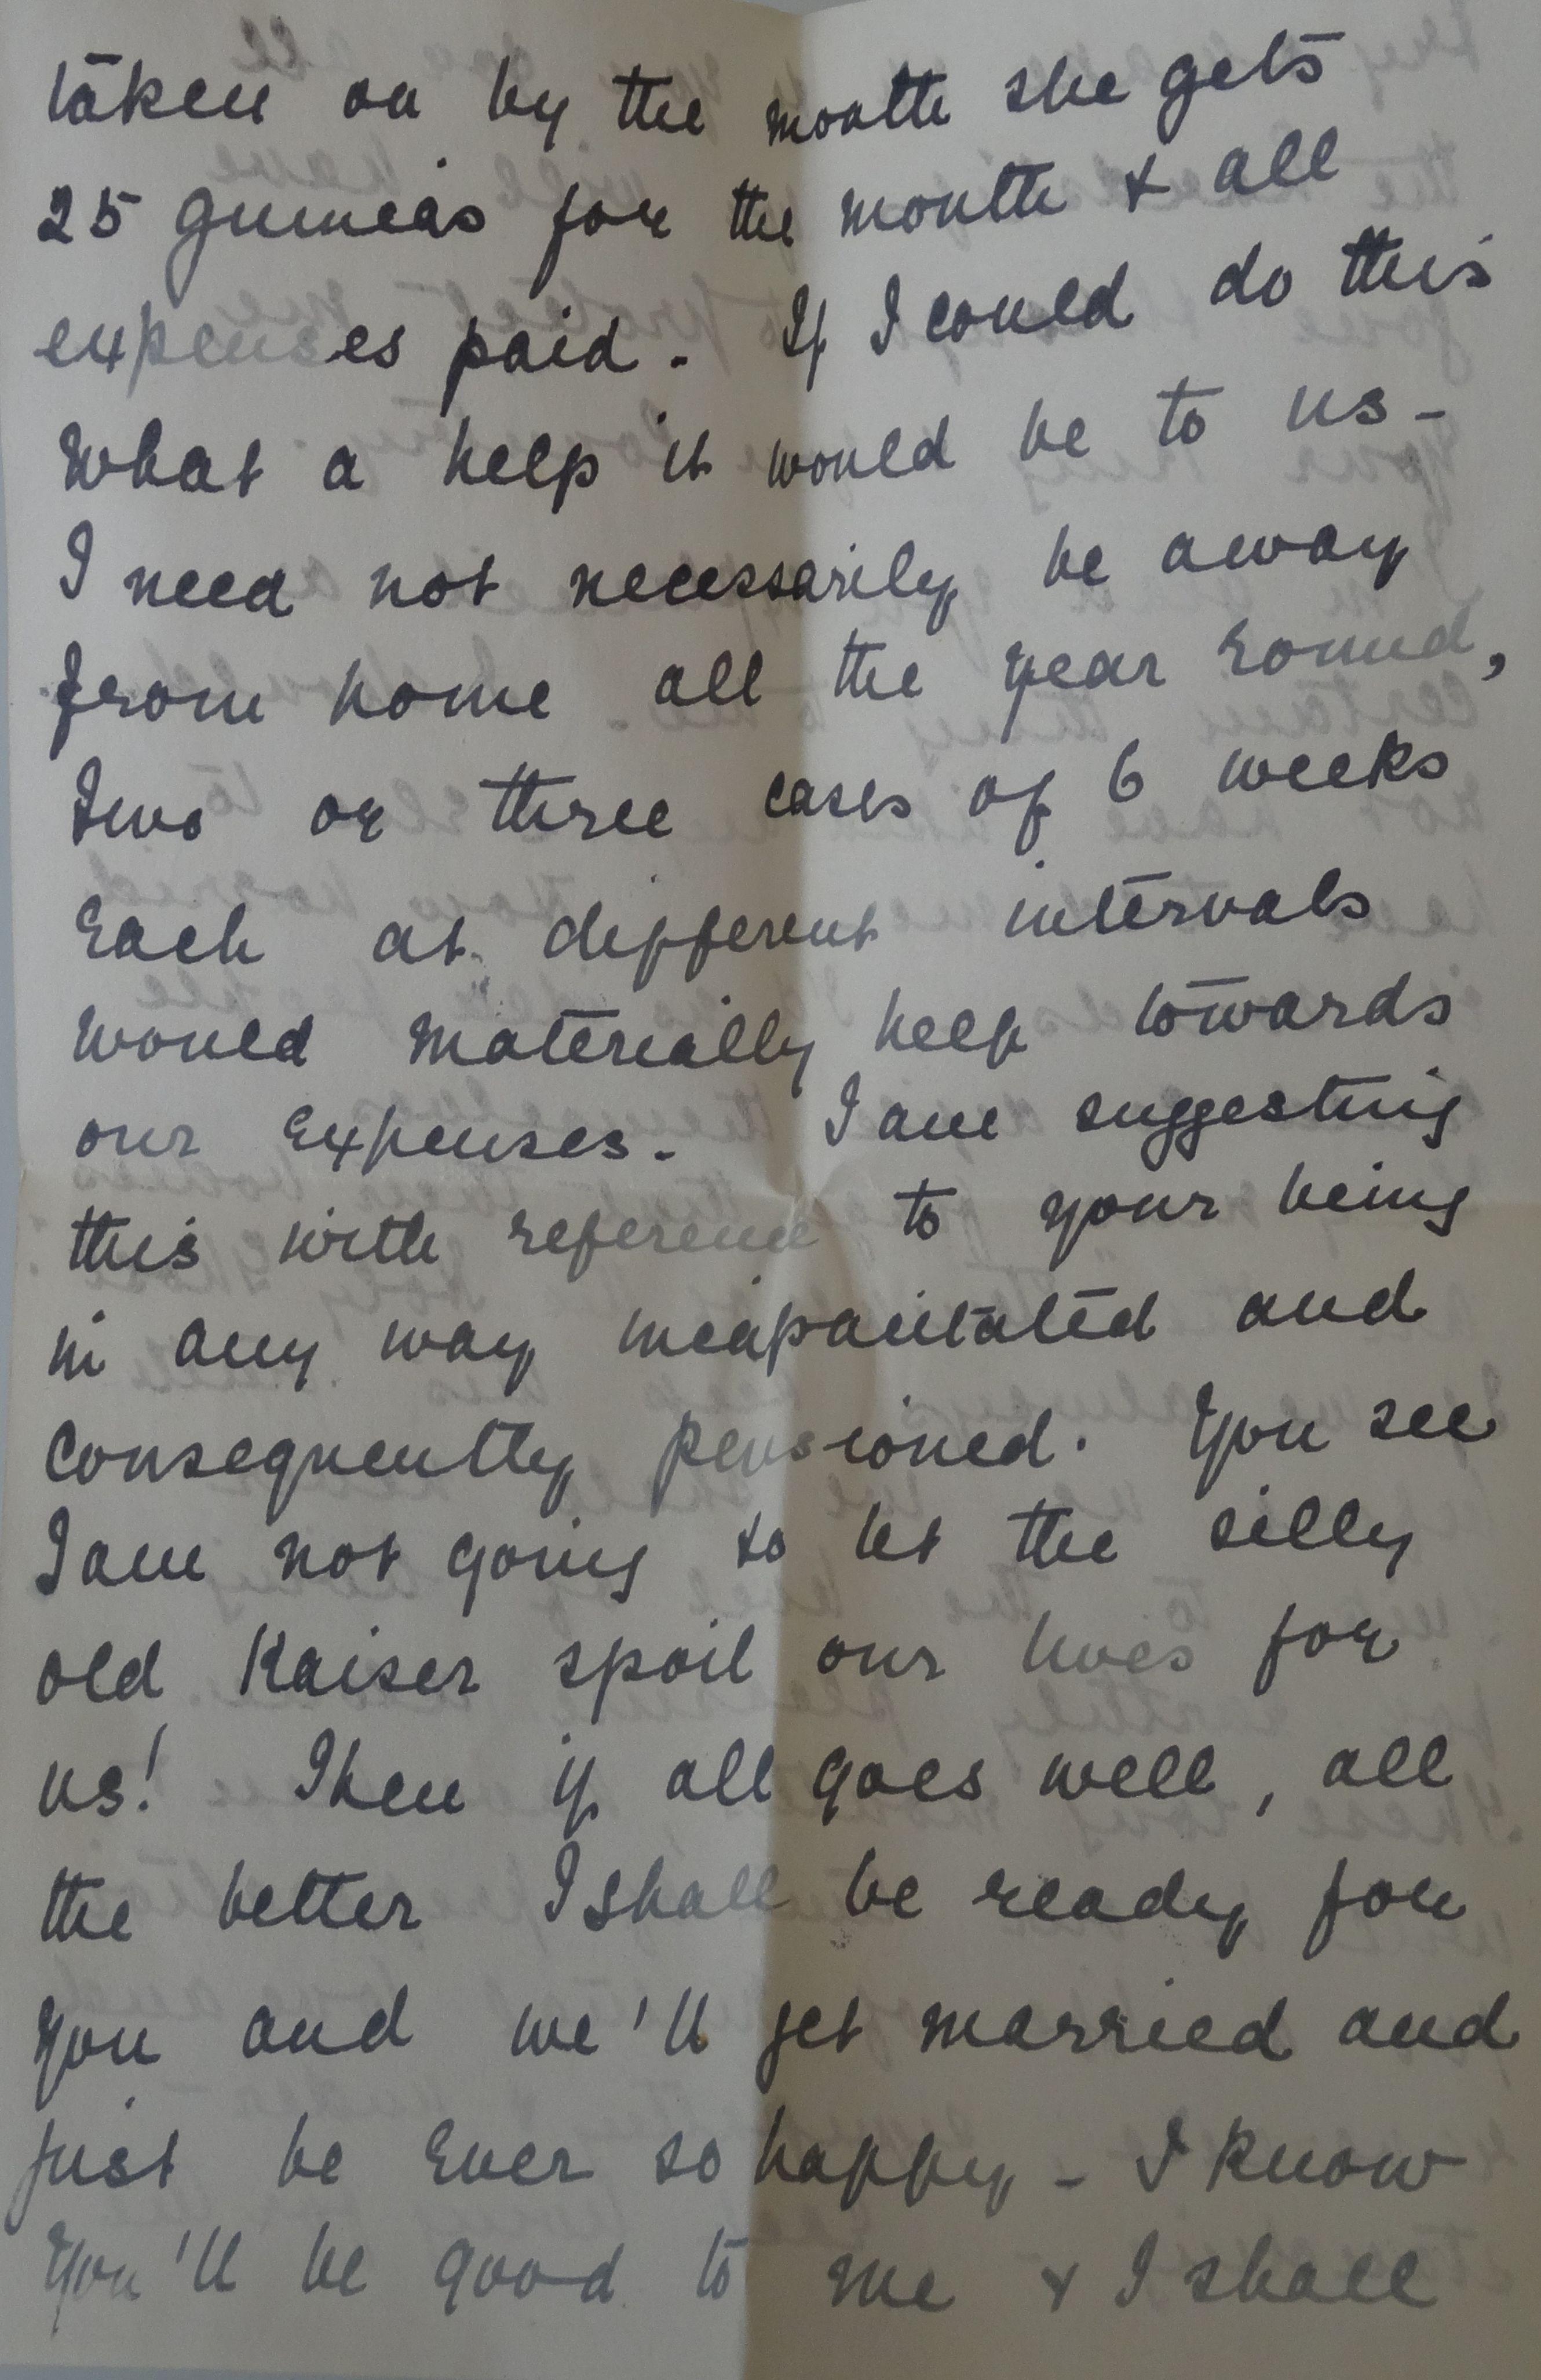 taken on by the month she gets
25 guineas for the month & all
expenses paid. If I could do this
what a help it would be to us -
I need not necessarily be away
from home all the year round,
Two or three cases of 6 weeks
each at different intervals
would materially help towards
our expenses. I am suggesting
this with reference to your being
in any way incapacitated and
consequently pensioned. You see
I am not going to let the silly
old Kaiser spoil our lives for
us! Then if all goes well, all
the better I shall be ready for
you and we'll get married and
just be ever so happy - I know
you'll be good to me & I shall